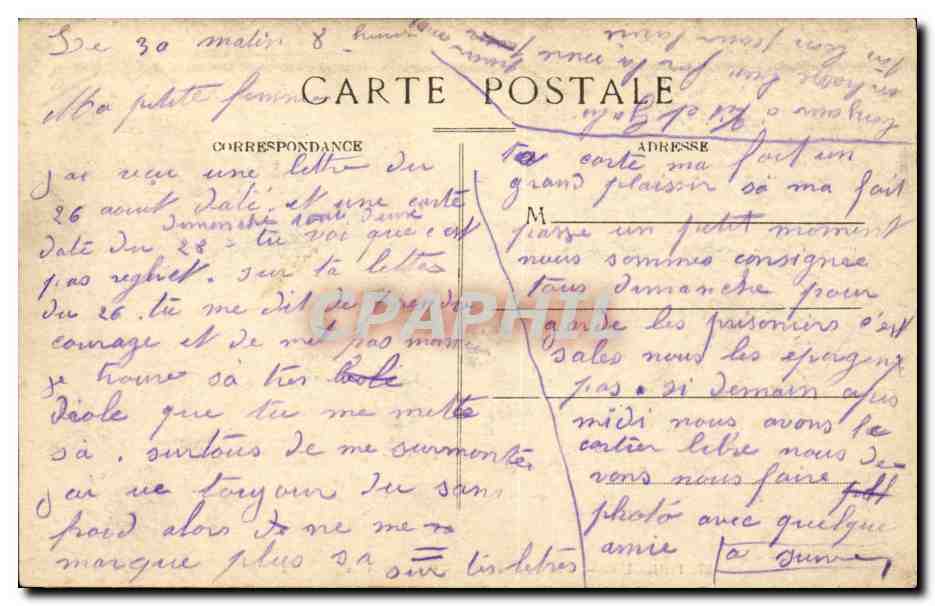 Le 30 matin 8 heures
Ma petite femme
CARTE POSTALE
CORRESPONDANCE
j'ai reçu une lettre du
26 aout daté. et une carte
dimanche
daté du 28 - tu voi que c'est
pas reghet. sur ta lettre
du 26. tu me dit de prendre
courage et de me pas
je trouve sà très
drole que tu me mette
sà. surtous de me surmonter
j'ai ue toujour du sans
froid alors ne me
marque plus sa sur tes letres
ADRESSE
M
ta carte ma fait un
grand plaisir sà ma fait
passe un petit moment
nous sommes consignée
tous dimanche pour
garde les prisoniers c'est
sales nous les épargenx
pas. si demain apris
midi nous avons le
cartier libre nous de-
vons nous faire
photo avec quelque
amie
à suivre
toujours
CPAPHIL